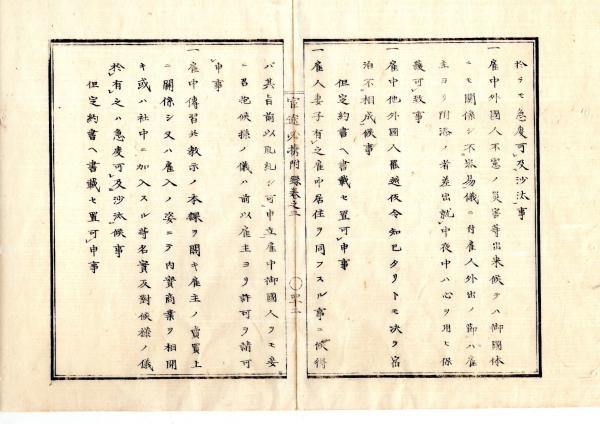 於テモ急度可及沙汰事
一雇中外國人不慮ノ災害等出来候テハ御國体
ニモ關係シ不容易儀ニ付雇人外出ノ節ハ雇
主ヨリ附添ノ者差出就中夜中ハ心ヲ用ヒ保
護可致事
一雇中他外國人罷越假令知已タリトモ决テ宿
泊不相成候事
但定約書ヘ書載セ置可申事
一雇人妻子有之雇中居住ヲ同フスル事ニ候得
官途必携附錄卷之三
四十二
ハ其旨前以取糺シ可申立雇中御國人ヲモ妾
ニ召抱候様ノ儀ハ前以雇主ヨリ許可ヲ請可
申事
一雇中傳習或教示ノ本課ヲ闕キ雇主ノ賣買上
ニ關係シ又ハ雇入ノ姿ニテ内實商業ヲ相開
キ或ハ社中ニ加入スル等名實反對候様ノ儀
於有之ハ急度可及沙汰候事
但定約書ヘ書載セ置可申事